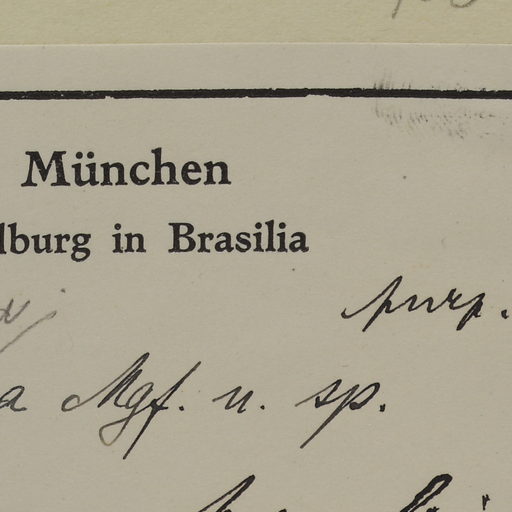 München
lburg in Brasilia
purp.
a Mgf. n. sp.